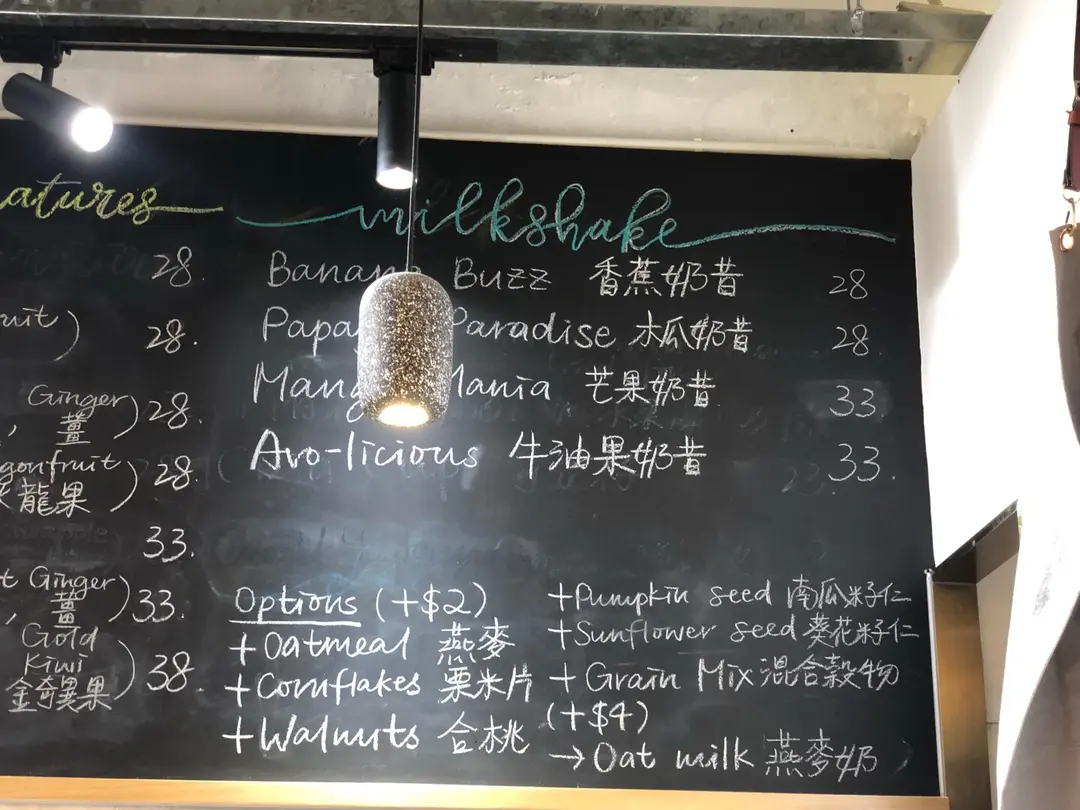 28.
28.
Ginger)
, 薑) 28.
28.
龍果)
33.
t Ginger
, 薑) 33.
Gold
Kiwi
金奇異果) 38.
milkshake
Buzz 香蕉奶昔 28
Paradise 木瓜奶昔 28.
Mania 芒果奶昔 33.
Avo-licious 牛油果奶昔 33.
Options (+$2)
+Oatmeal 燕麥
+Cornflakes 粟米片
+Walnuts 合桃
+Pumpkin seed 南瓜籽仁
+Sunflower seed 葵花籽仁
+Grain Mix 混合穀物
(+$4)
→Oat milk 燕麥奶